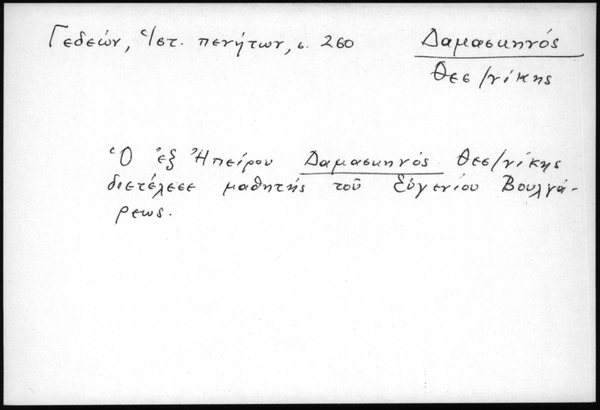 Γεδεών, Ἱστ. πενήτων, σ. 260
Δαμασκηνός
Θεσ/νίκης
Ὁ ἐξ Ἠπείρου Δαμασκηνός Θεσ/νίκης
διετέλεσε μαθητής τοῦ Εὐγενίου Βουλγά-
ρεως.